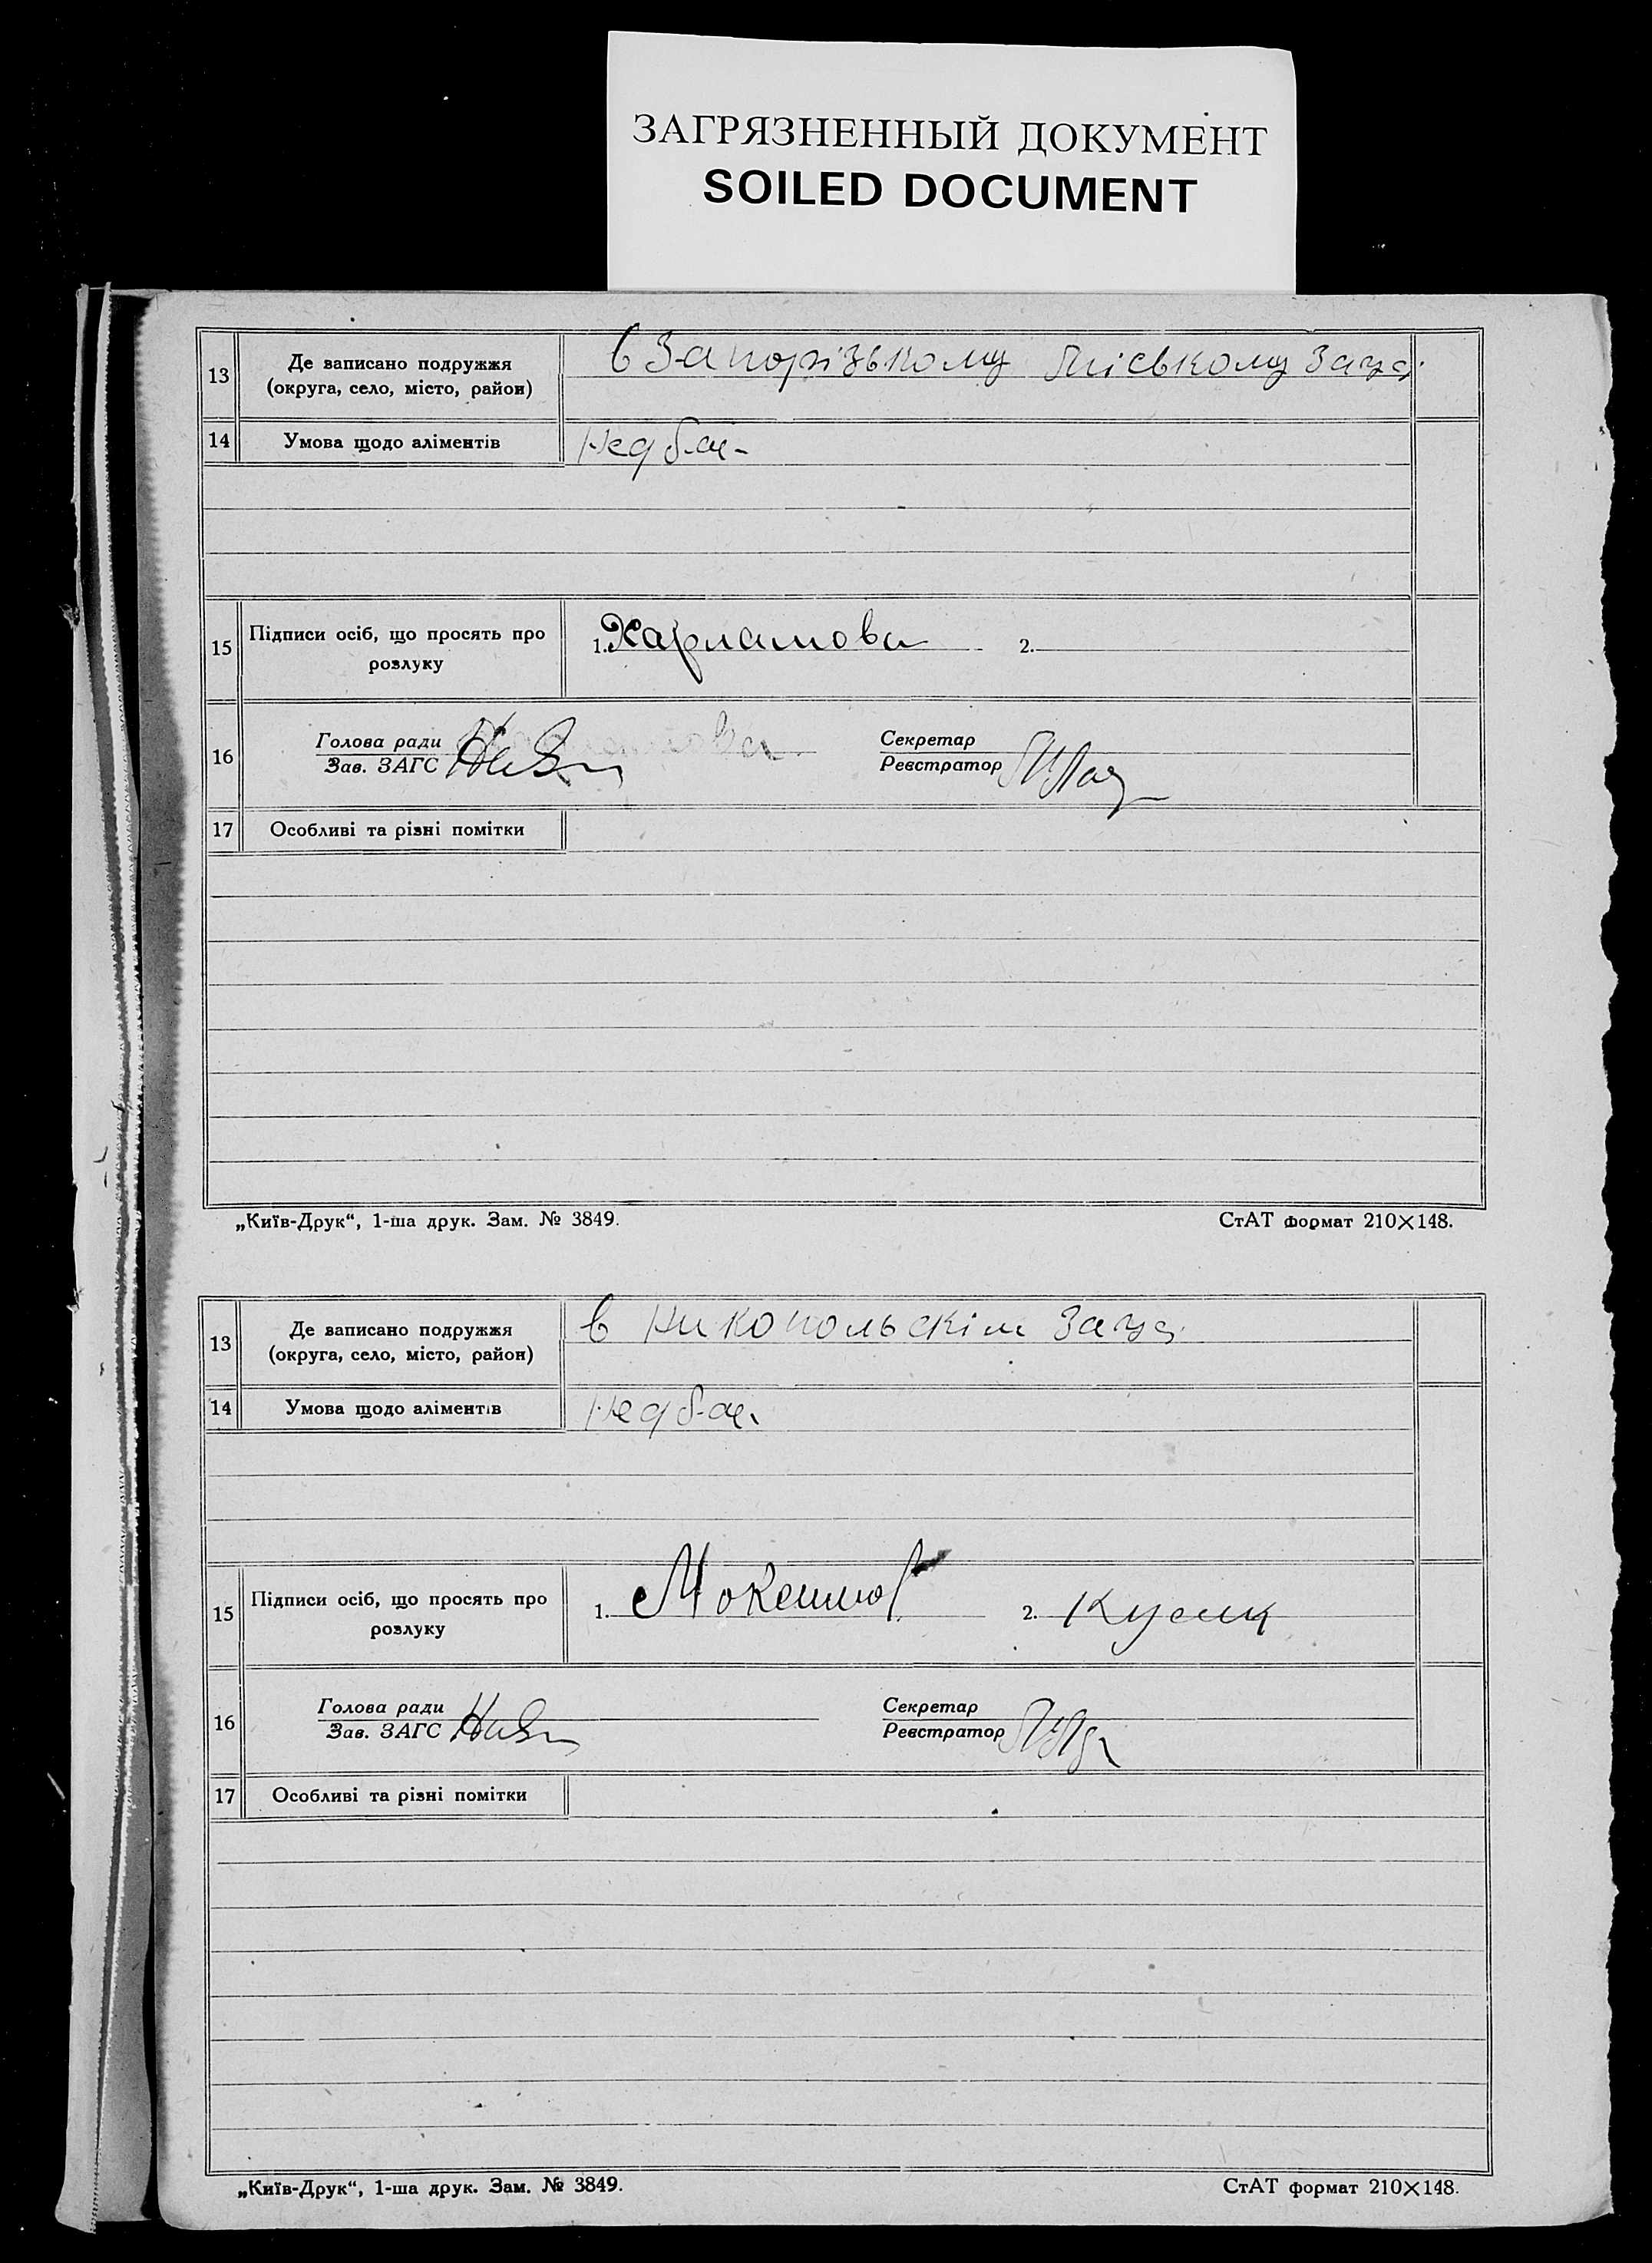 ЗАГРЯЗНЕННЫЙ ДОКУМЕНТ
SOILED DOCUMENT
13 Де записано подружжя (округа, село, місто, район) в Запорізькому Міському Загсі
14 Умова щодо аліментів
15 Підписи осіб, що просять про розлуку 1. Харламова 2.
16 Голова ради Секретар
Зав. ЗАГС Реєстратор
17 Особливі та різні помітки
„Київ-Друк“, 1-ша друк. Зам. № 3849. СтАТ формат 210×148.
13 Де записано подружжя (округа, село, місто, район) в Никопольскім Загсі
14 Умова щодо аліментів
15 Підписи осіб, що просять про розлуку 1. 2.
16 Голова ради Секретар
Зав. ЗАГС Реєстратор
17 Особливі та різні помітки
„Київ-Друк“, 1-ша друк. Зам. № 3849. СтАТ формат 210×148.